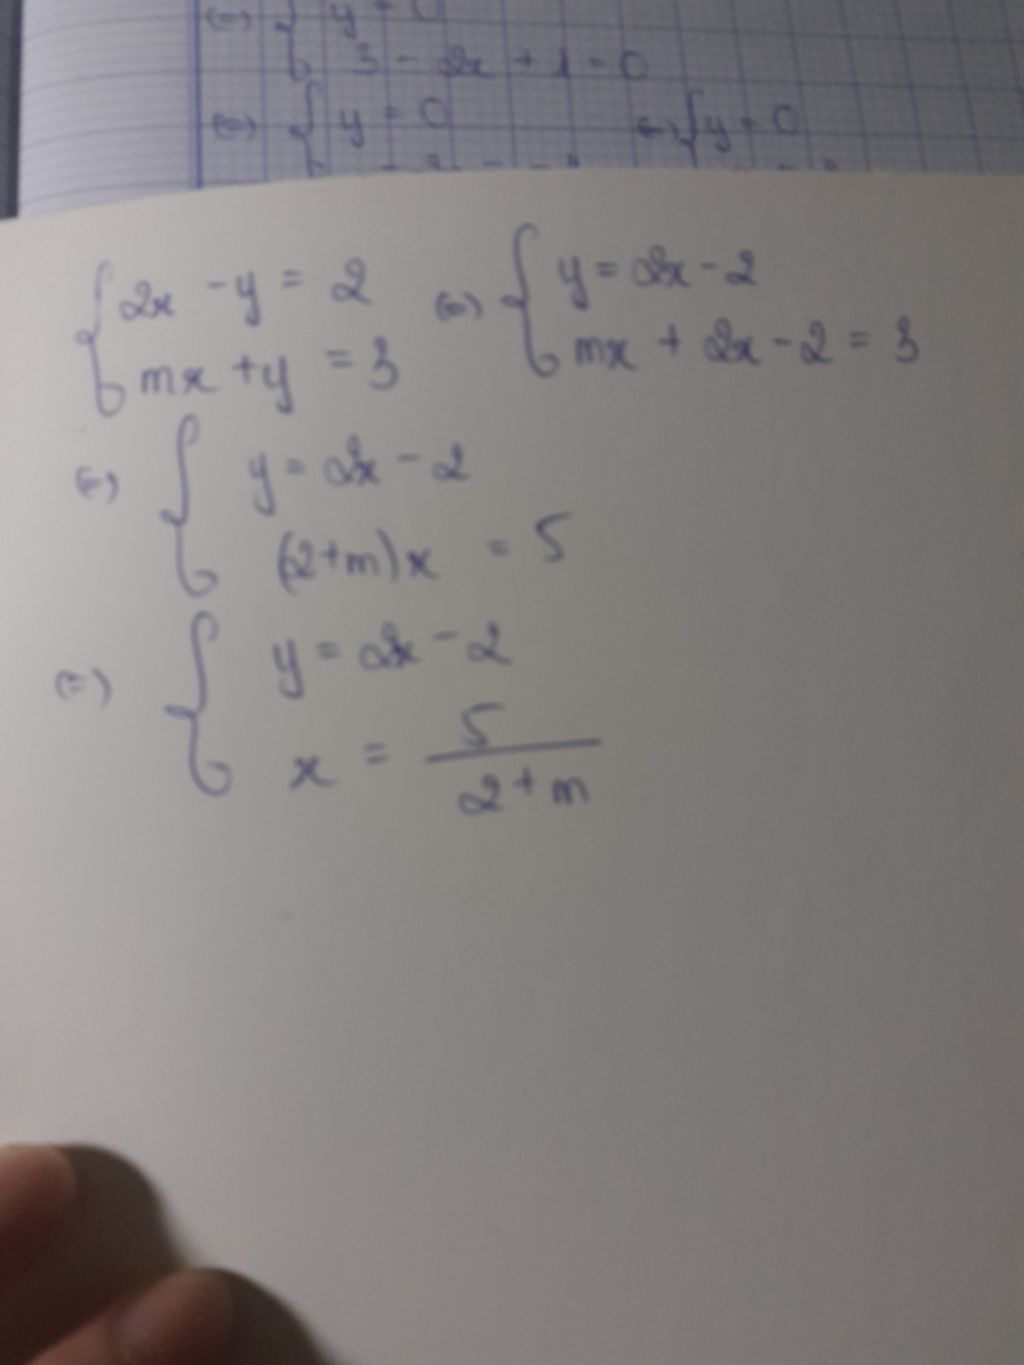 (=) { y = 0
3 - 2x + 1 = 0
(=) { y = 0 (=) { y = 0
{ 2x - y = 2 (=) { y = 2x - 2
mx + y = 3 mx + 2x - 2 = 3
(=) { y = 2x - 2
(2+m)x = 5
(=) { y = 2x - 2
x = 5 / 2 + m